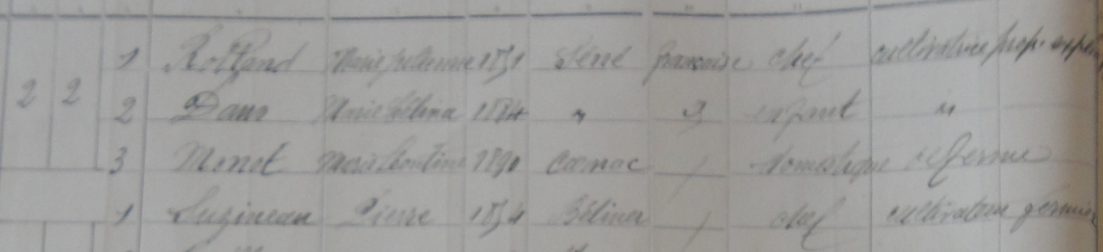 2 2 1 Rolland Marie Julienne 1851 Séné française chef cultivatrice prop. exploit
2 Dano Marie Célina 1884 " " enfant "
3 Monot Marie Leontine 1890 Carnac / domestique de ferme
1 Luzineau Pierre 1854 / chef cultivateur fermier